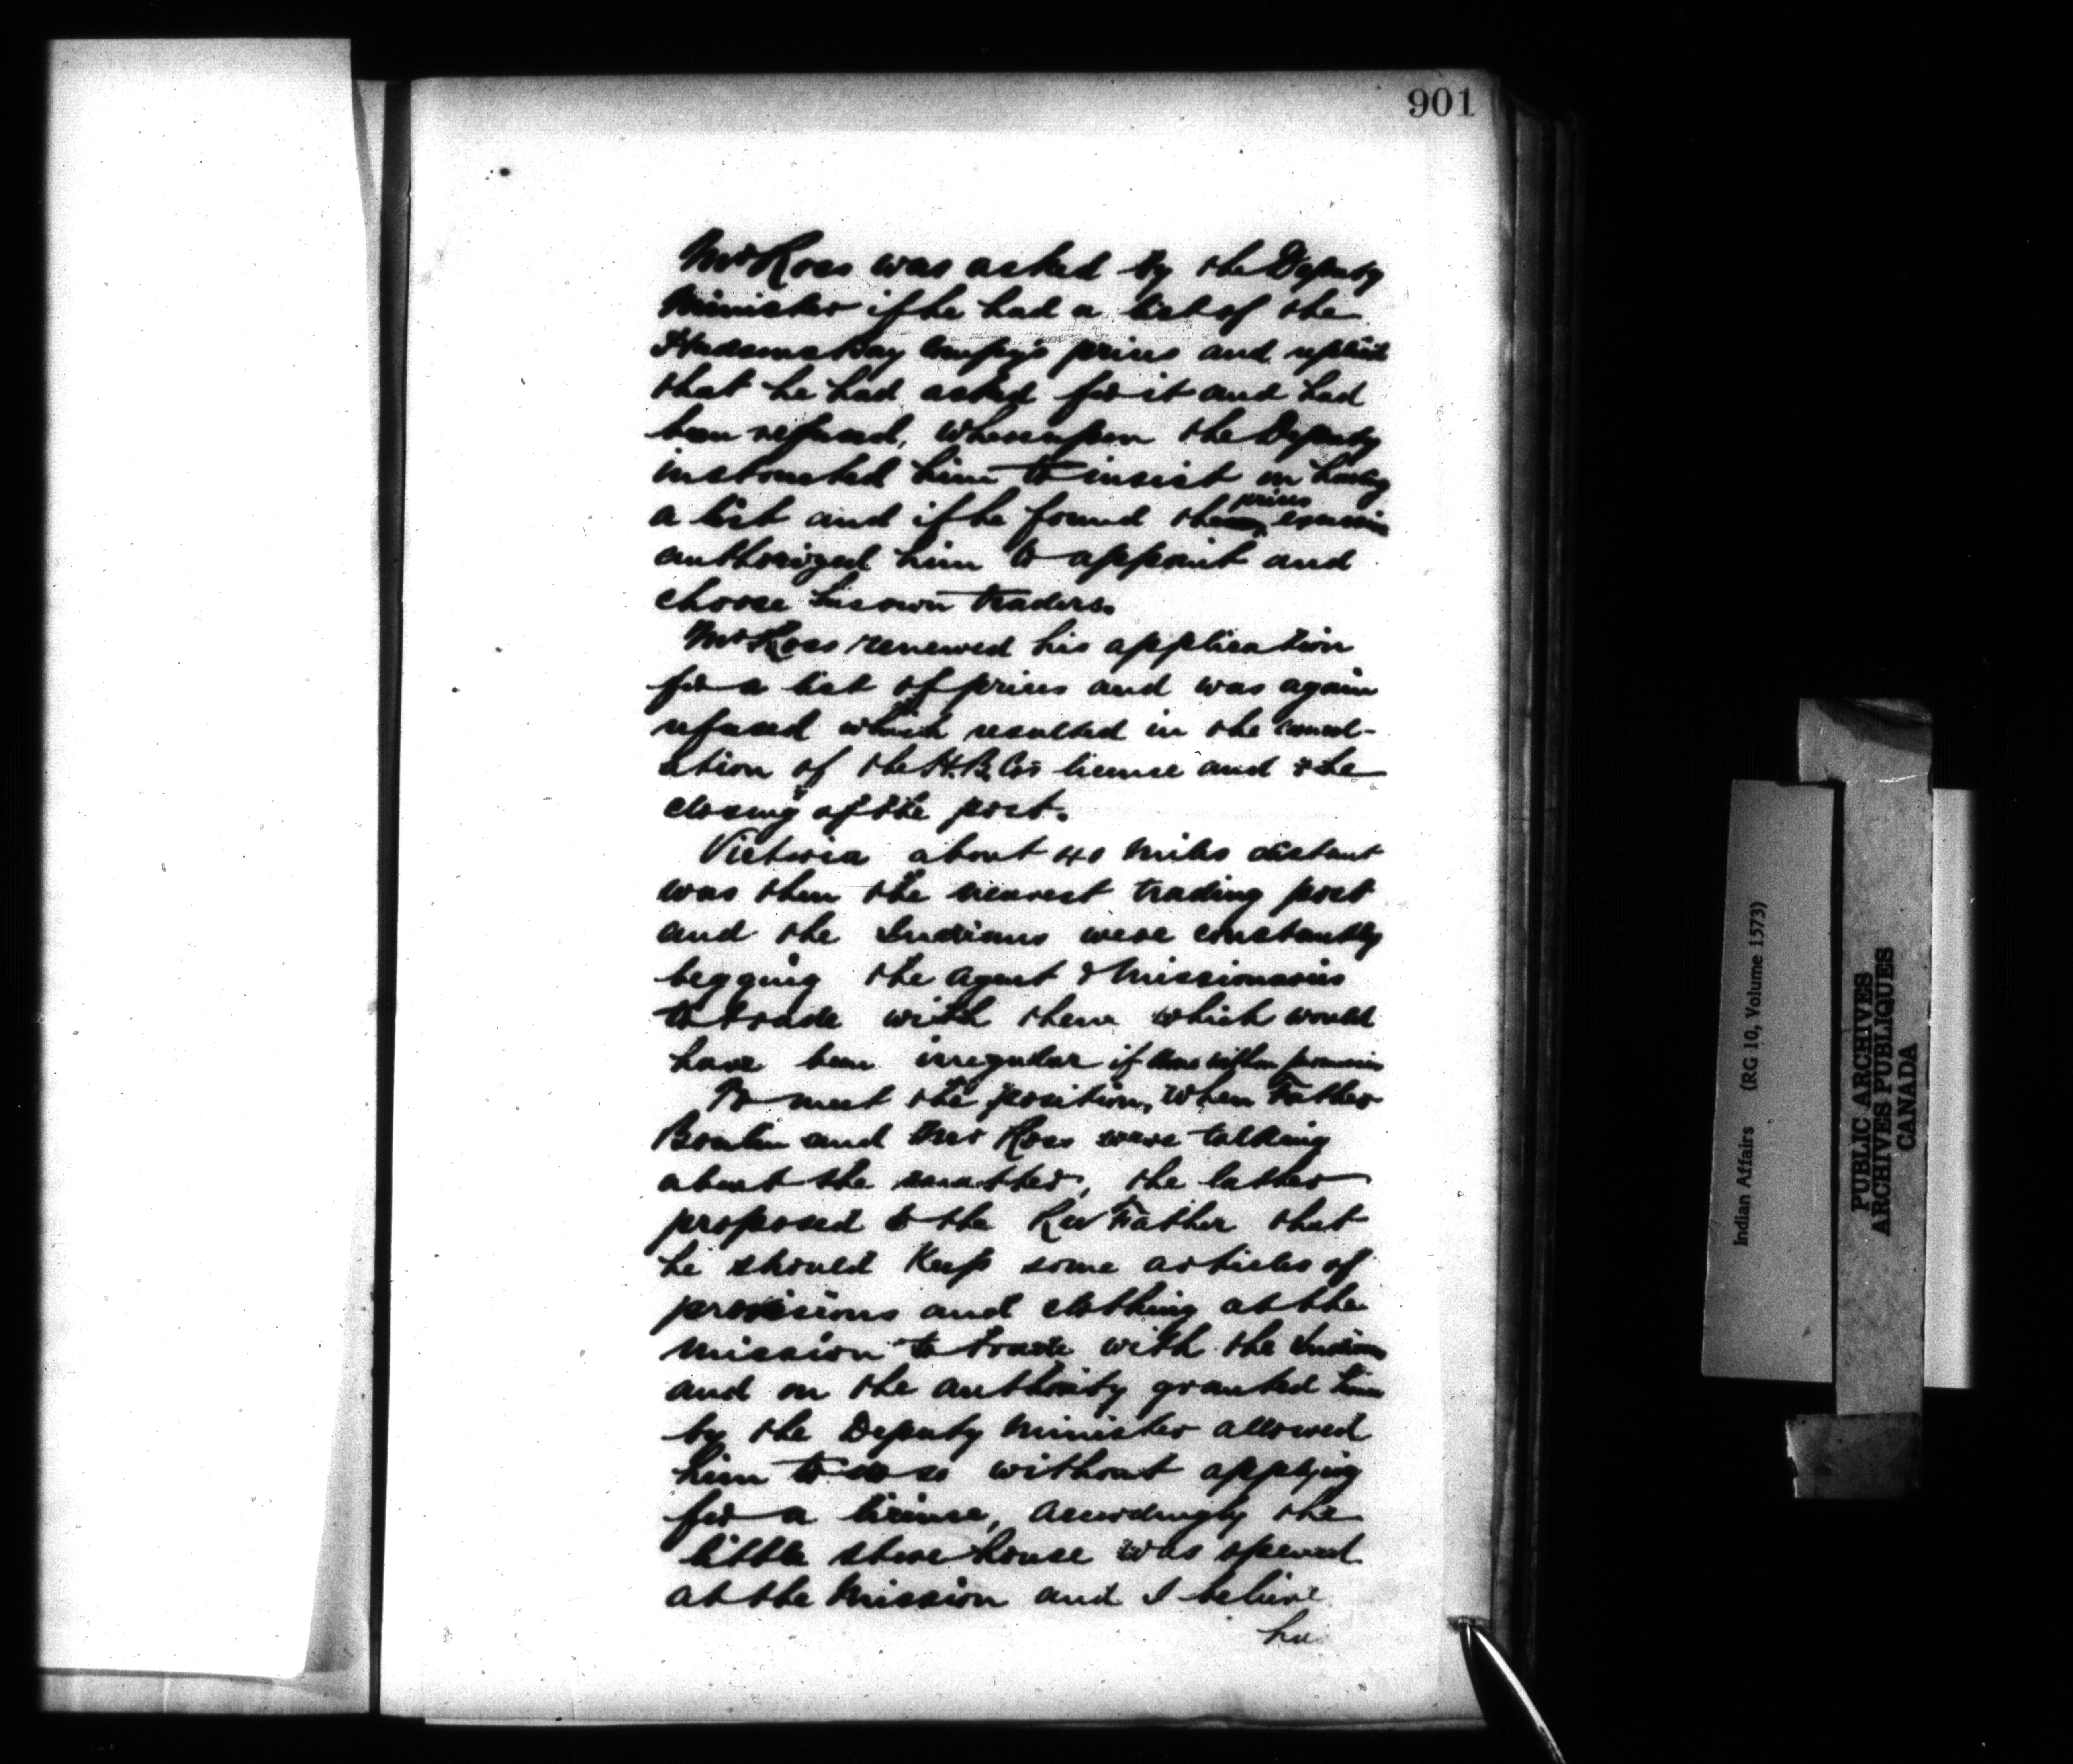 901
Mr Ross was asked by the Deputy
Minister if he had a list of the
Hudsons Bay Compy's prices and replied
that he had asked for it and had
been refused, whereupon the Deputy
instructed him to insist on having
prices
a list and if he found the excessive
authorized him to appoint and
choose his own traders.
Mr Ross renewed his application
for a list of prices and was again
refused which resulted in the cancel-
ation of the H.B.Co's licence and the
closing of the post.
Victoria about 40 miles distant
was then the nearest trading post
and the Indians were constantly
begging the Agent & Missionaries
to trade with them which would
have been irregular if
To meet the position, when Father
and Mr Ross were talking
about the matter, the latter
proposed to the Rev Father that
he should keep some articles of
provisions and clothing at the
mission to trade with the Indians
and on the authority granted him
by the Deputy Minister allowed
him to do so without applying
for a license, accordingly the
little store house was opened
at the Mission and I believe
he
Indian Affairs (RG 10, Volume 1573)
PUBLIC ARCHIVES
ARCHIVES PUBLIQUES
CANADA